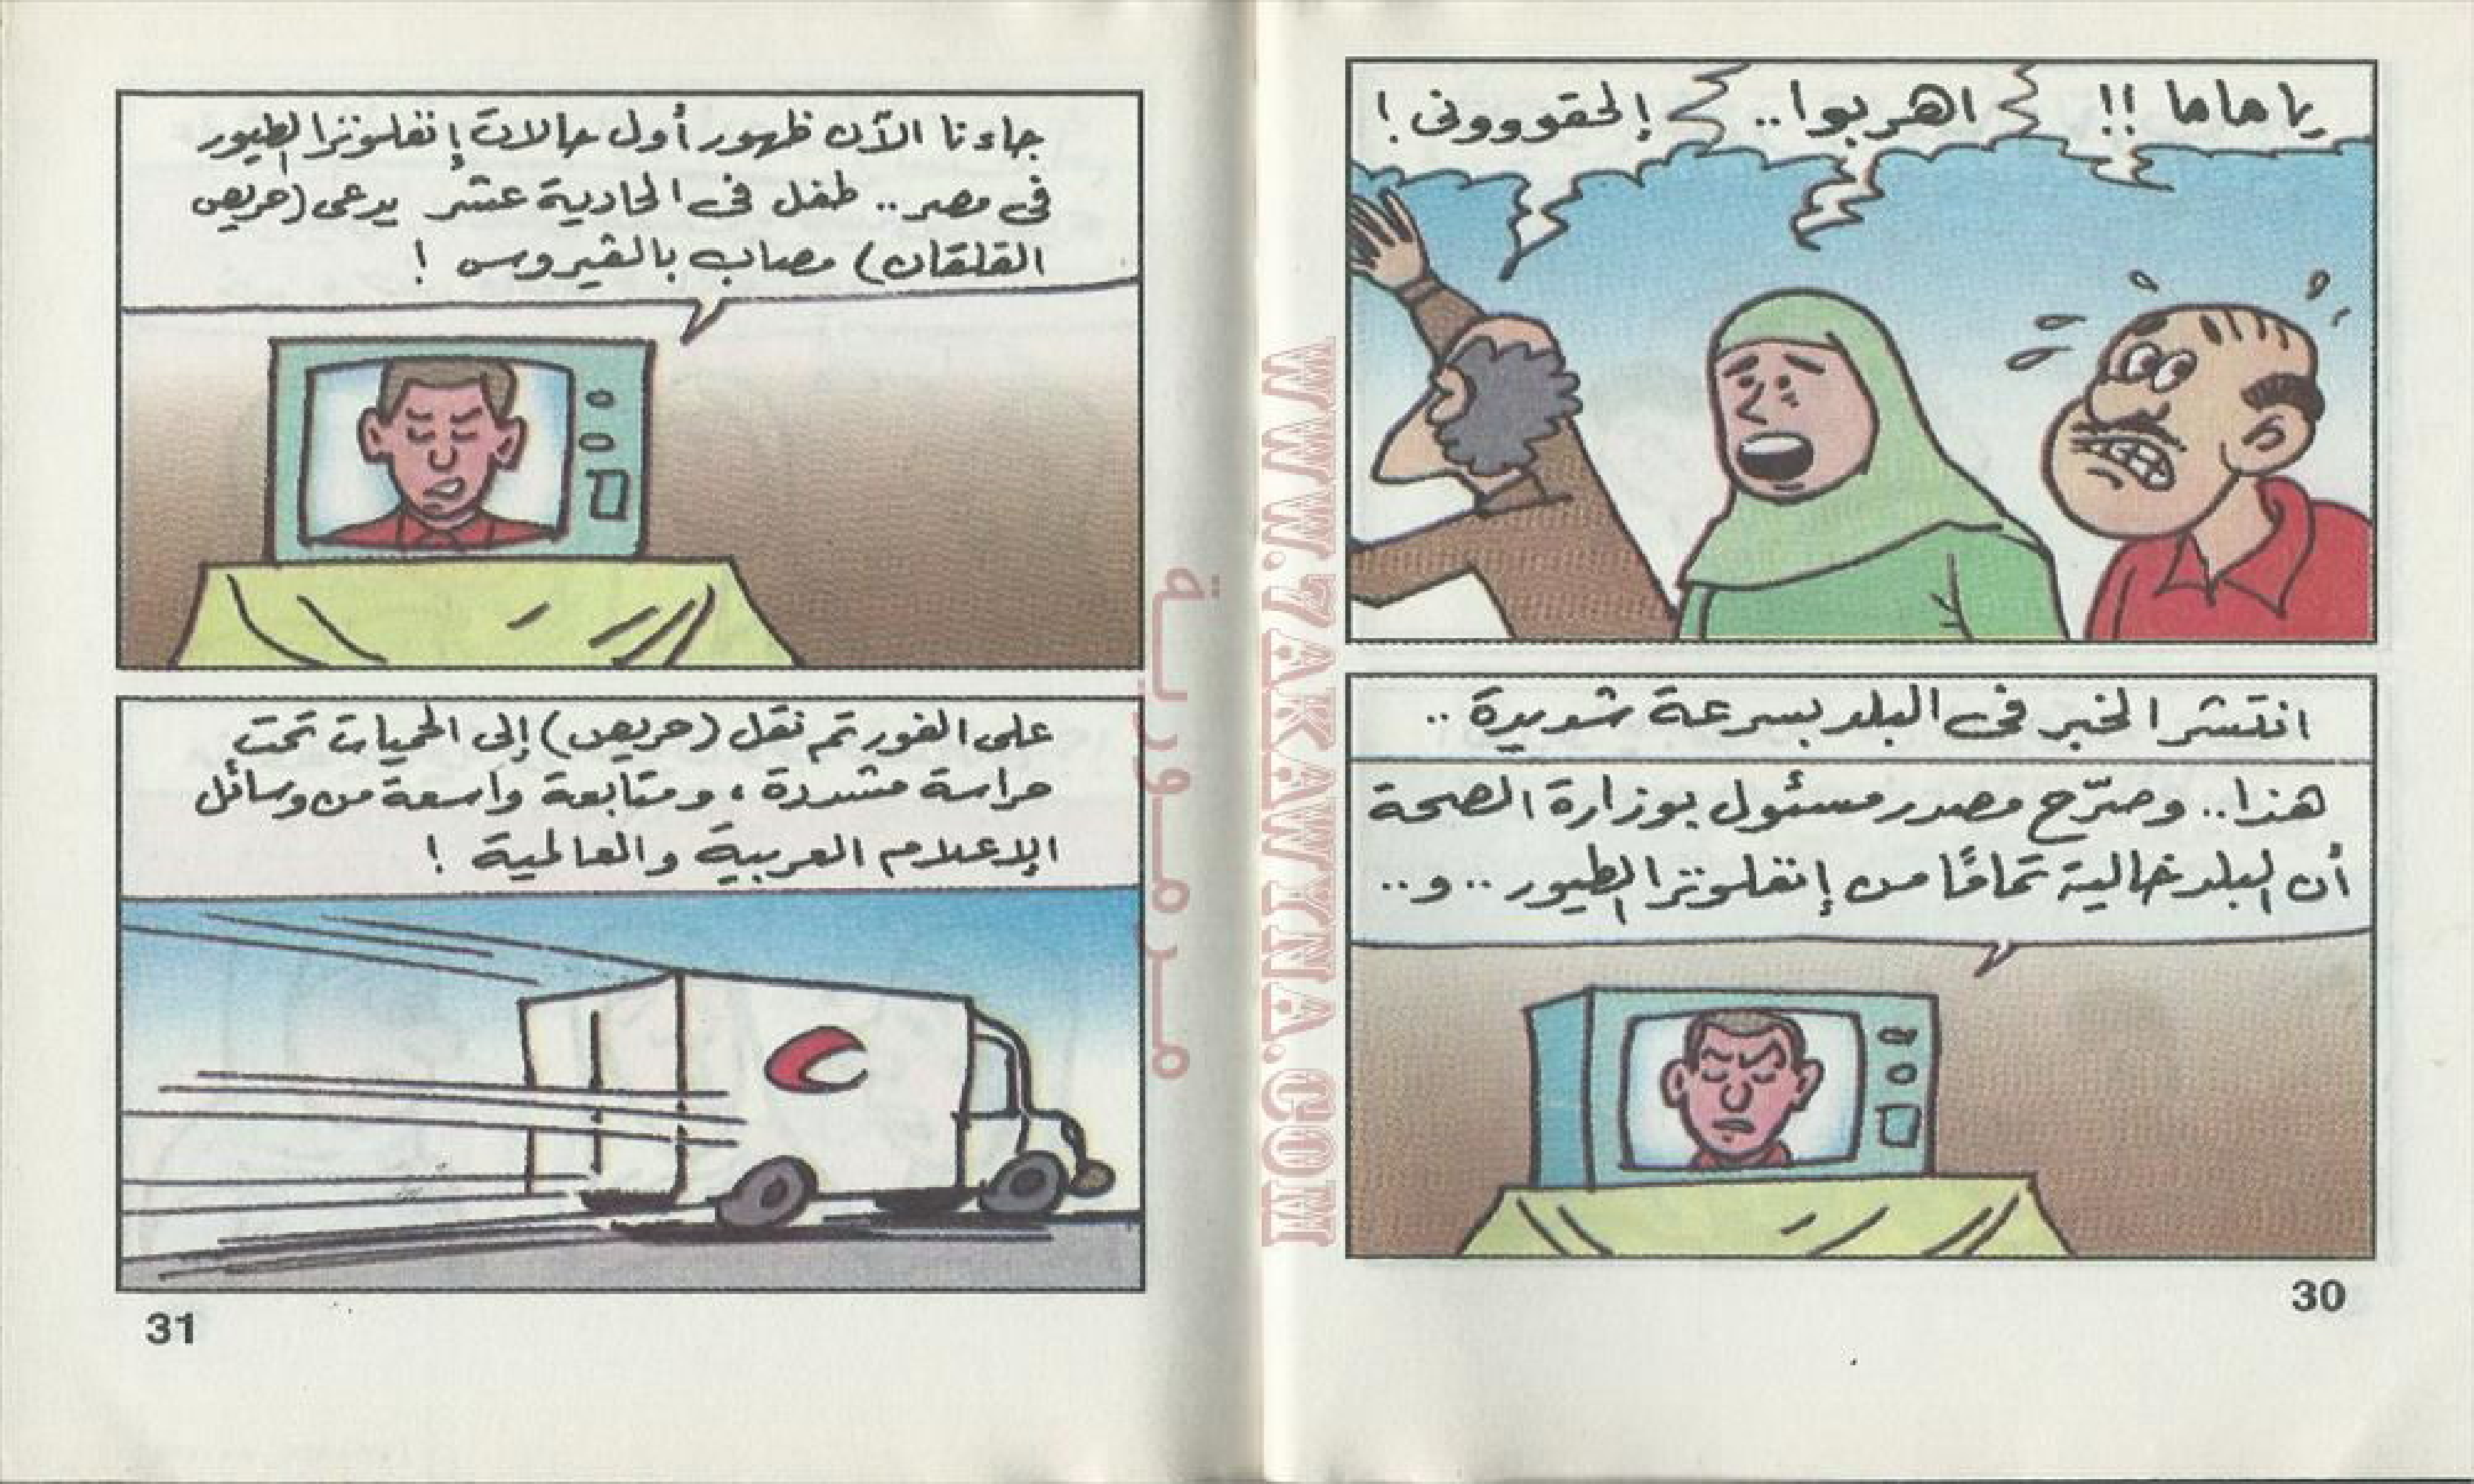 يا ماما !!
اهربوا..
إلحقوووونى !
انتشر الخبر فى البلد بسرعة شديدة ..
هذا.. وصرّح مصدر مسئول بوزارة الصحة
أن البلد خالية تمامًا من إنفلونزا الطيور .. و..
30
جاءنا الآن ظهور أول حالات إنفلونزا الطيور
فى مصر.. طفل فى الحادية عشر يدعى (حريص
القلقان) مصاب بالفيروس !
على الفور تم نقل (حريص) إلى الحميات تحت
حراسة مشددة ، ومتابعة واسعة من وسائل
الإعلام العربية والعالمية !
31
WWW.7AKAWYNA.COM
مرمورية